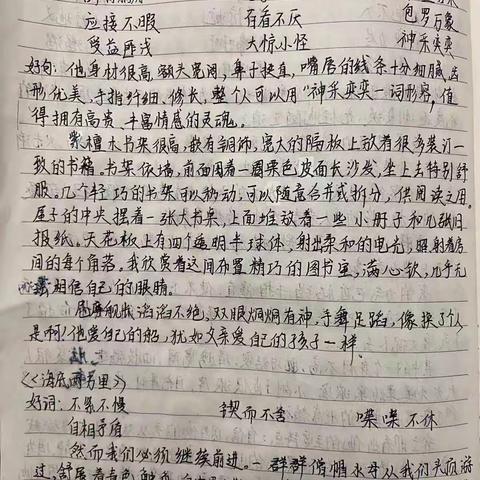 应接不暇 百看不厌 包罗万象
受益匪浅 大惊小怪 神采奕奕
好句：他身材很高，额头宽阔，鼻子挺直，嘴唇的线条十分细腻，齿
形优美，手指纤细、修长，整个人可以用"神采奕奕一词形容，值
得拥有高贵、丰富情感的灵魂。
紫檀木书架很高，嵌有铜饰，宽大的隔板上放着很多装订一
致的书籍。书架依墙，前面围着一圈栗色皮面长沙发，坐上去特别舒
服。几个轻巧的书架可以移动，可以随意合并或拆分，供阅读之用。
屋子的中央摆着一张大书桌，上面堆放着一些小册子和几张旧
报纸。天花板上有四个透明半球体，射出柔和的电光，照射着房
间的每个角落。我欣赏着这间布置精巧的图书室，满心钦，几乎无
相信自己的眼睛。
尼摩船长滔滔不绝，双眼炯炯有神，手舞足蹈，像换了个人
是啊！他爱自己的船，犹如父亲爱自己的孩子一样
《海底两万里》
好词：不紧不慢 锲而不舍 喋喋不休
自相矛盾
然而我们必须继续前进。一群群僧帽水母从我们头顶游
过，舒展着青色触